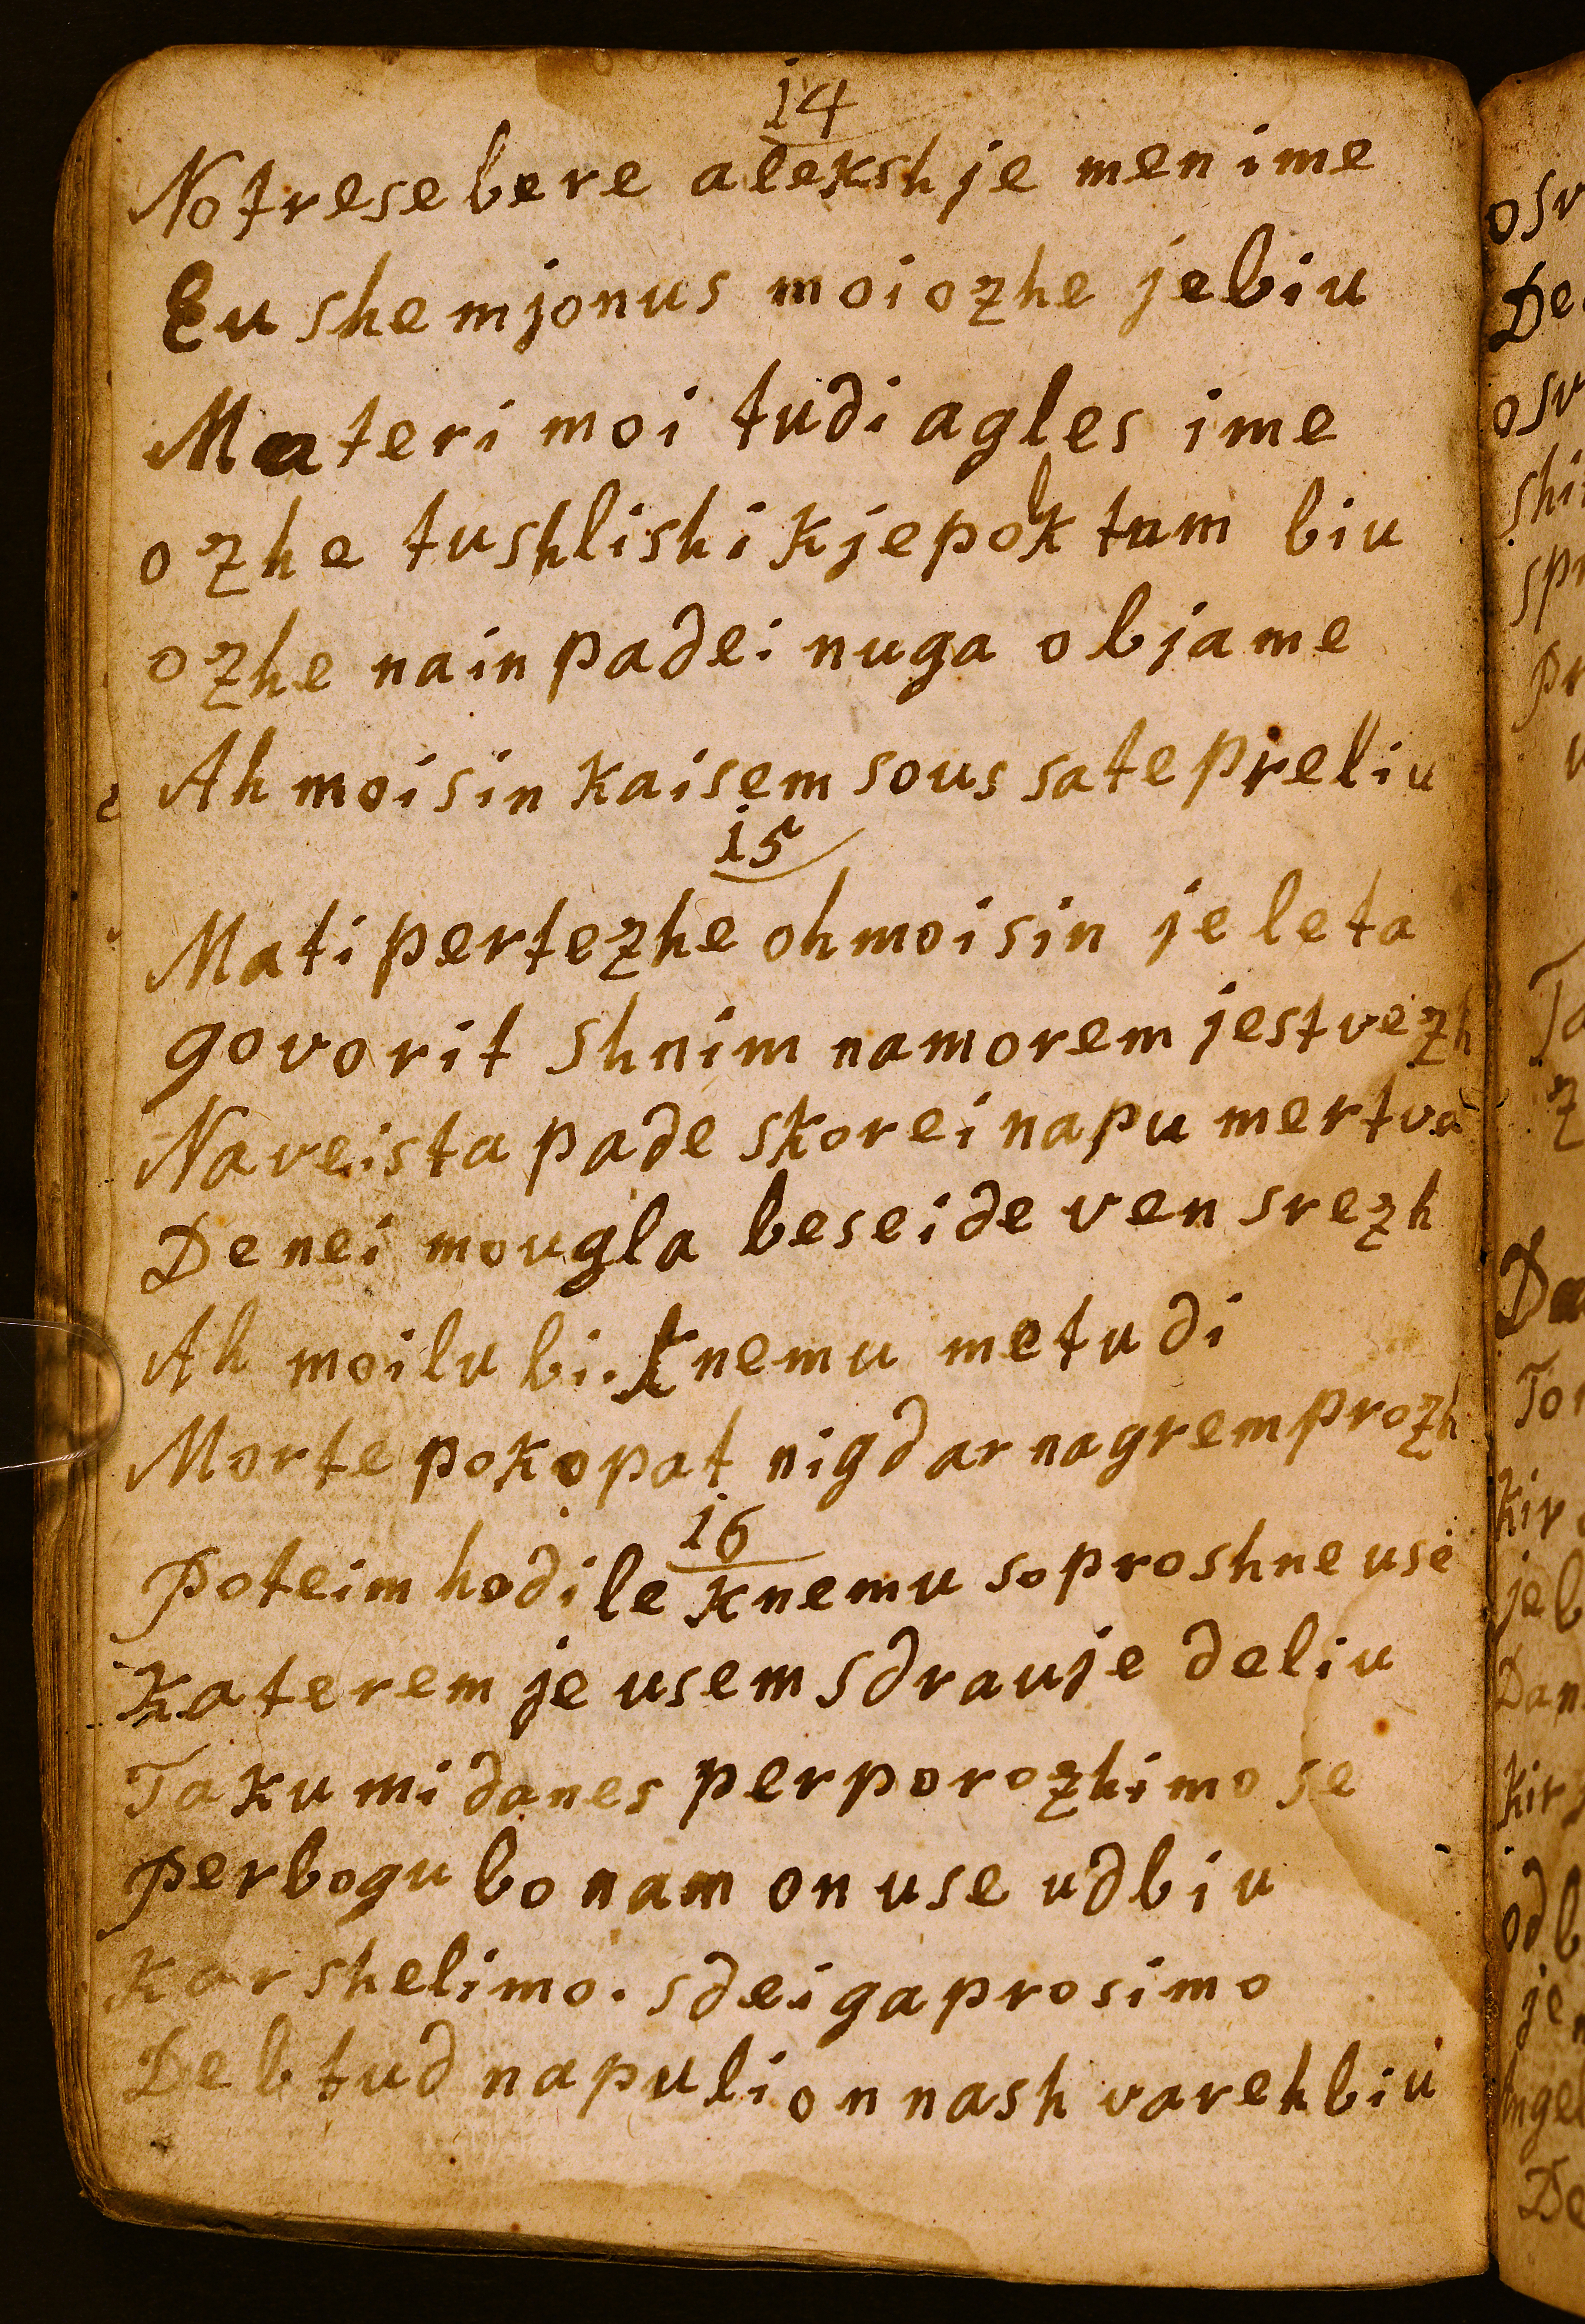 14
Notresebere alekshje menime
Eu shemjonus moiozhe jebiu
Materi moi tudi agles ime
ozhe tushlishi kjepok tam biu
ozhe nain padei nuga objame
Ah moisin kaisem sous satepreliu
15
Mati pertezhe ohmoisin jeleta
govorit shnim namorem jestvezh
Naveista pade skorei napu mertva
De nei mougla beseide ven srezh
Ah moilubi. knemu metudi
Morte pokopat nigdar nagrem prozh
16
Poteim hodile knemu soproshne use
katerem je usem sdrauje deliu
Taku mi danes perporozhimo se
perbogu bo nam on use udbiu
kar shelimo. sdei gaprosimo
Deb tud napuli on nash varehbiu
osv
De
osv
shi
sp
pr
Ta
z
D
To
kir
je b
Dan
kir
od b
je
Angel
De